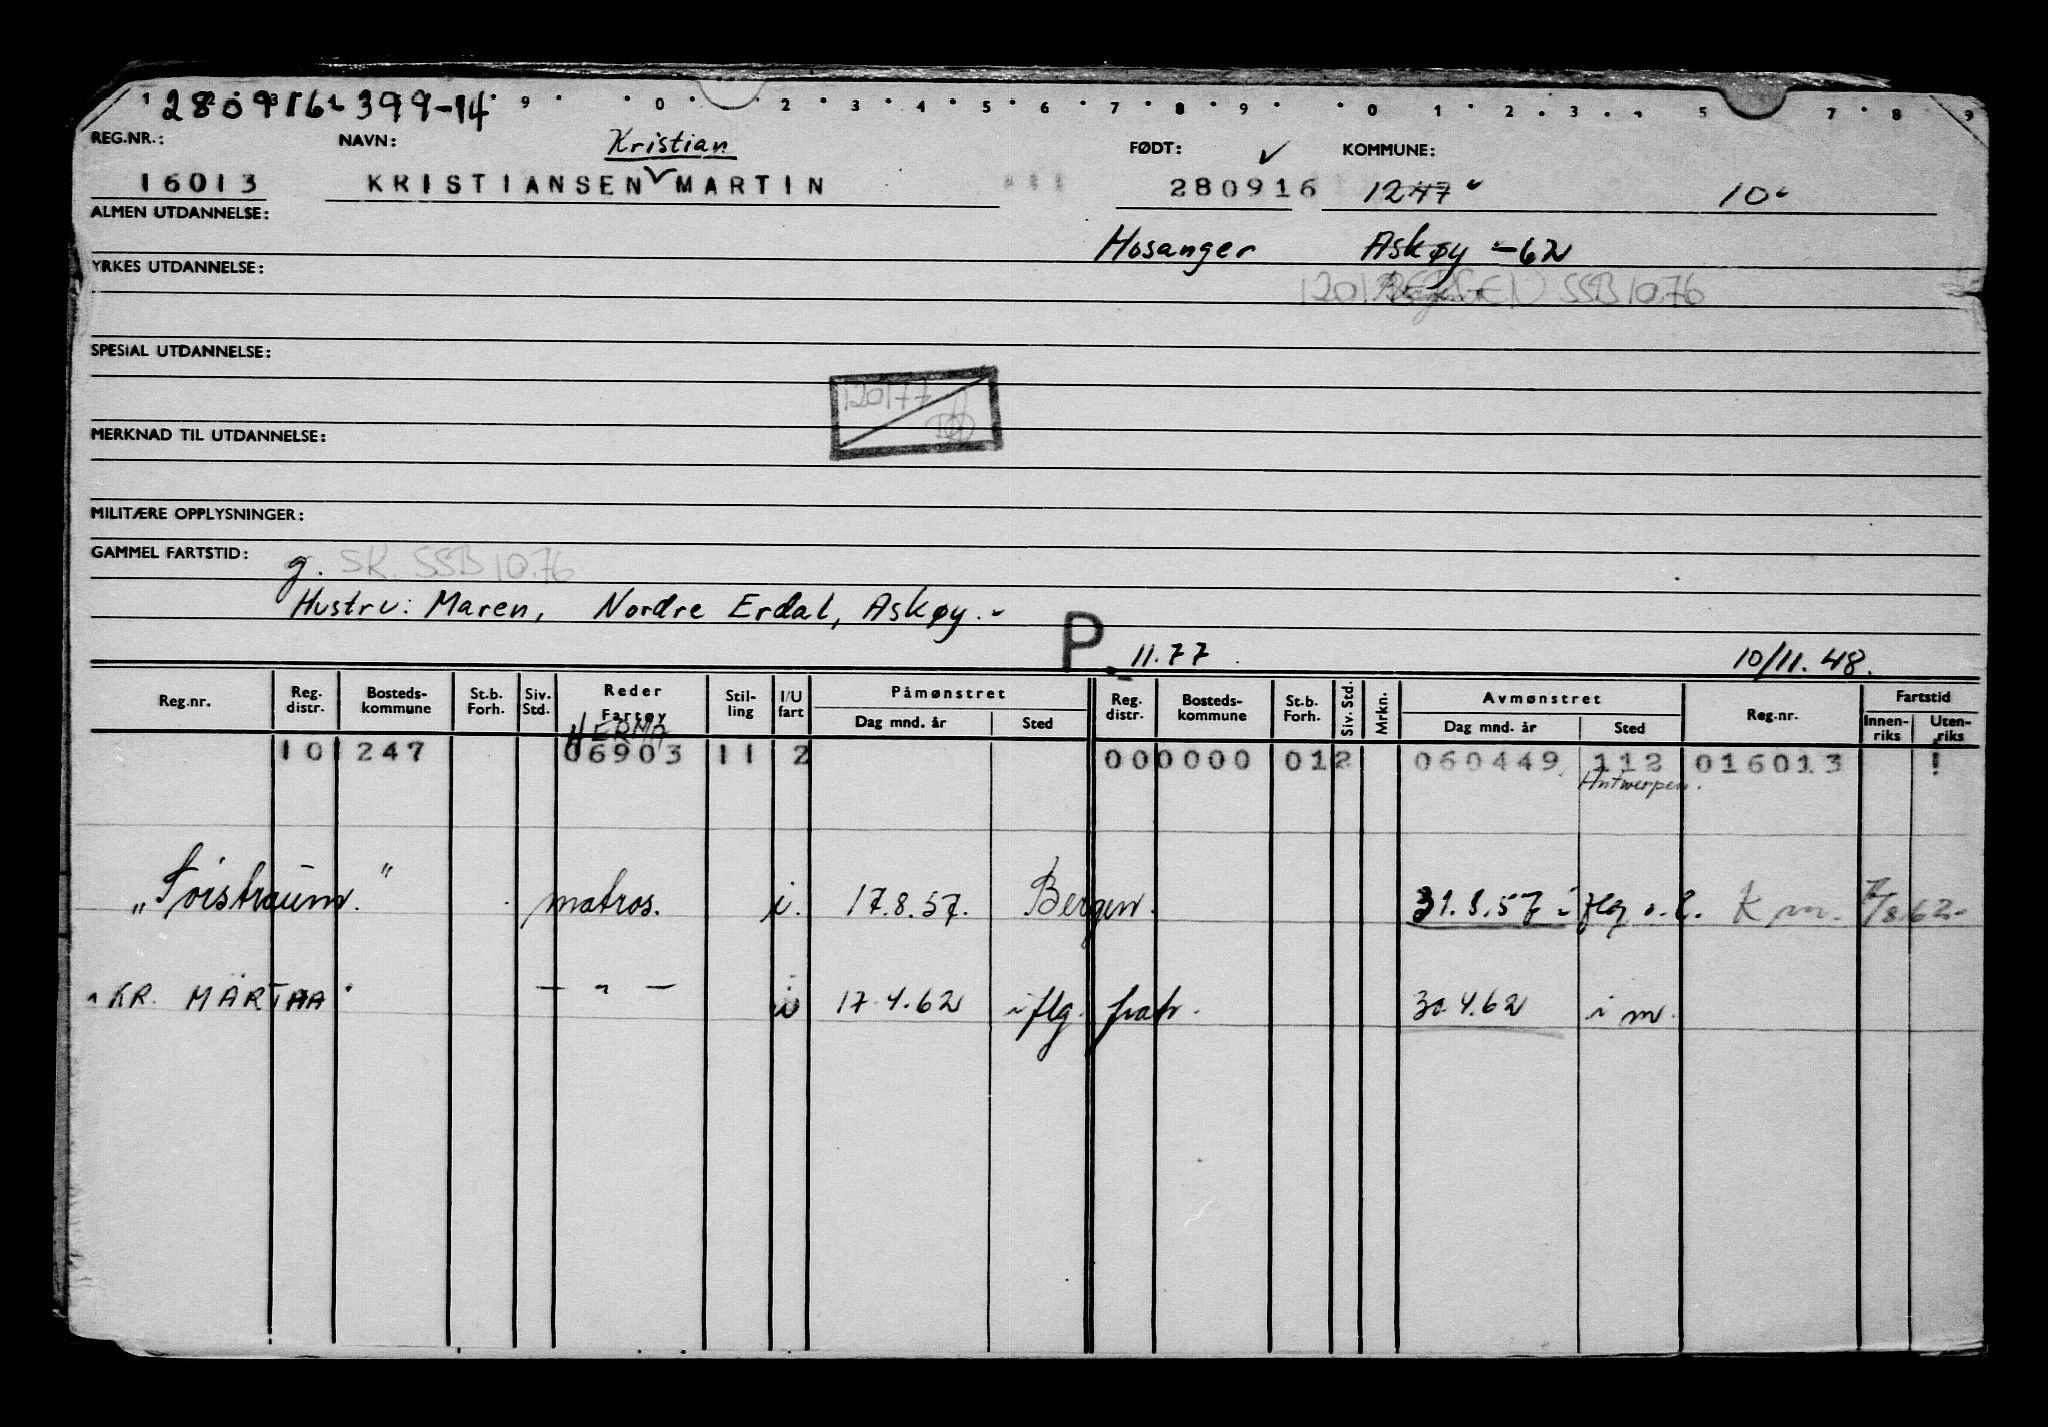 280916-399-14
1 9 0 2 3 4 5 6 7 8 9 0 1 2 3 4 5 7 8 9
REG.NR.: NAVN: Kristian FØDT: ✓ KOMMUNE:
16013 KRISTIANSEN ✓ MARTIN 280916 1247 10
ALMEN UTDANNELSE:
Hosanger Askøy -62
YRKES UTDANNELSE:
1201 BERGEN SSB 10.76
SPESIAL UTDANNELSE:
120177
MERKNAD TIL UTDANNELSE:
MILITÆRE OPPLYSNINGER:
GAMMEL FARTSTID: g. SR. SSB 10.76
Hustru: Maren, Nordre Erdal, Askøy.
P. 11.77 10/11.48.
Reg.nr. Reg. distr. Bosteds-kommune St.b. Forh. Siv. Std. Reder Fartøy Stil-ling I/U fart Påmønstret Dag mnd. år Sted Reg. distr. Bosteds-kommune St.b. Forh. Siv. Std. Mrkn. Avmønstret Dag mnd. år Sted Reg.nr. Fartstid Innen-riks Uten-riks
HERMA
10 1247 06903 11 2 000000 012 060449 112 016013 1
Antwerpen.
matros. i. 17.8.57. Bergen. 31.8.57 i flg. K m. 7/8 62-
"KR. MÄRTHA" — " — i 17.4.62 i flg. fratr. 30.4.62 i m.